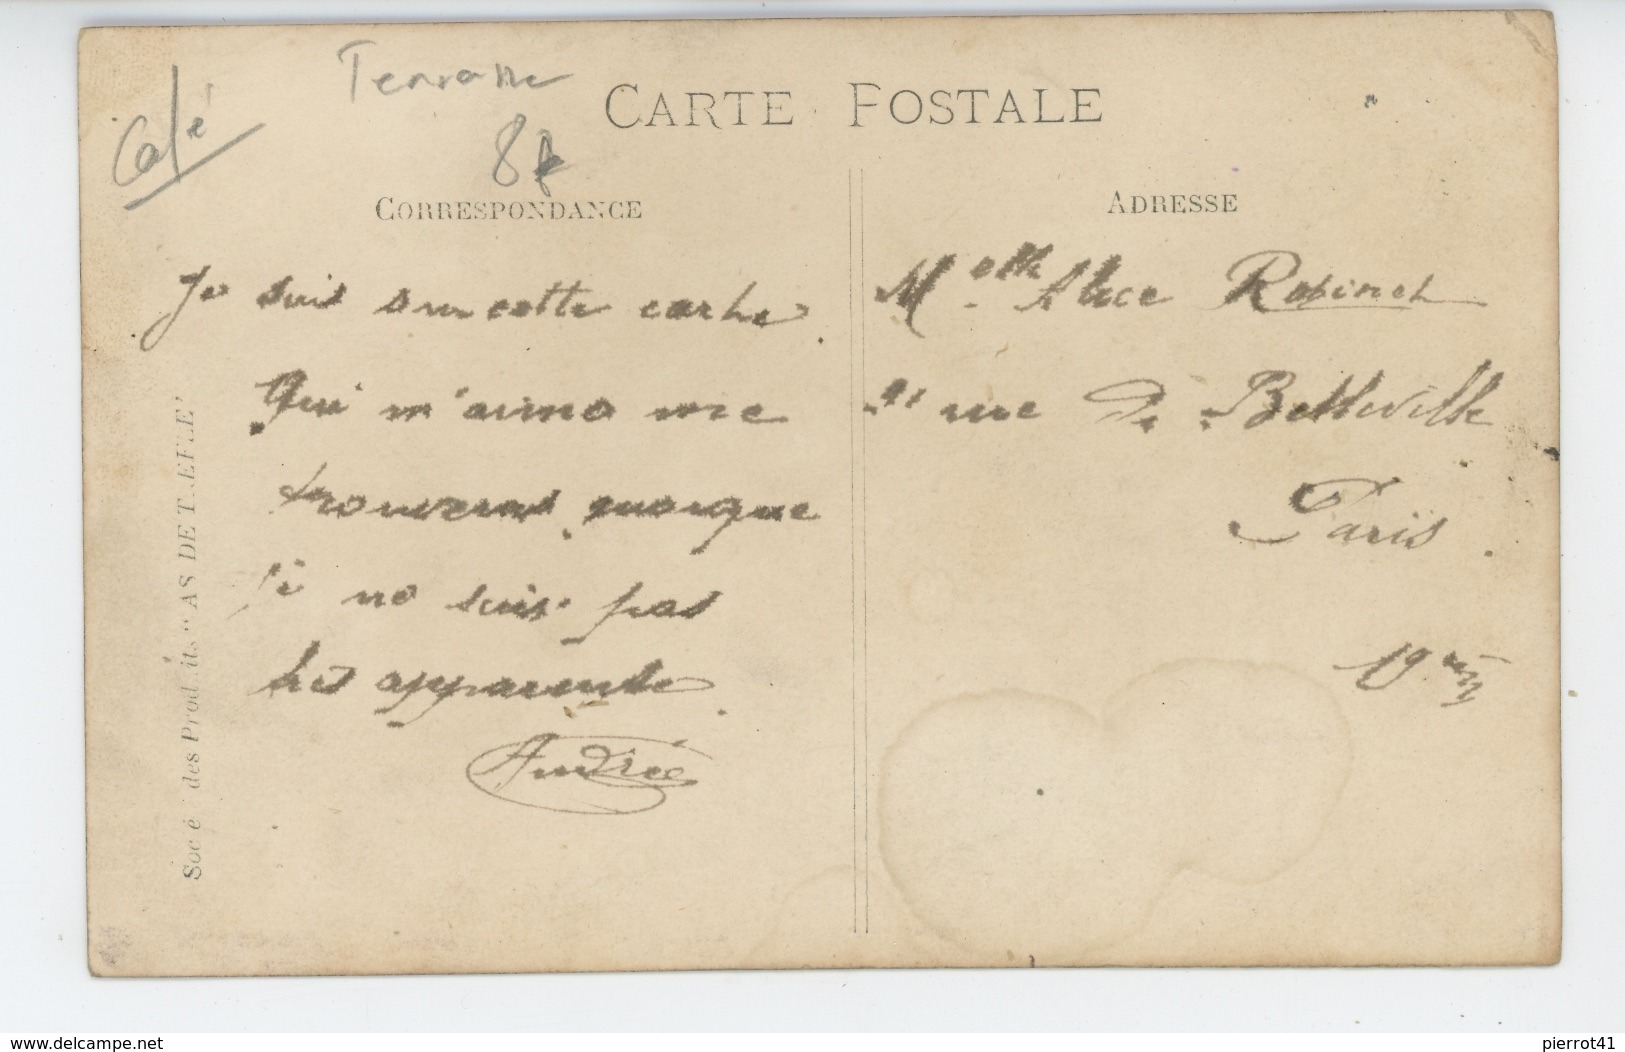 Café
Terrasse
CARTE POSTALE
CORRESPONDANCE
ADRESSE
Je suis sur cette carte.
Qui m'aime me
trouveras quoique
je ne suis pas
très apparente.
Andrée
Melle Alice Robinet
rue De Belleville
Paris.
19
des Prod its "AS DE T EFLE"
www.delcampe.net
pierrot41